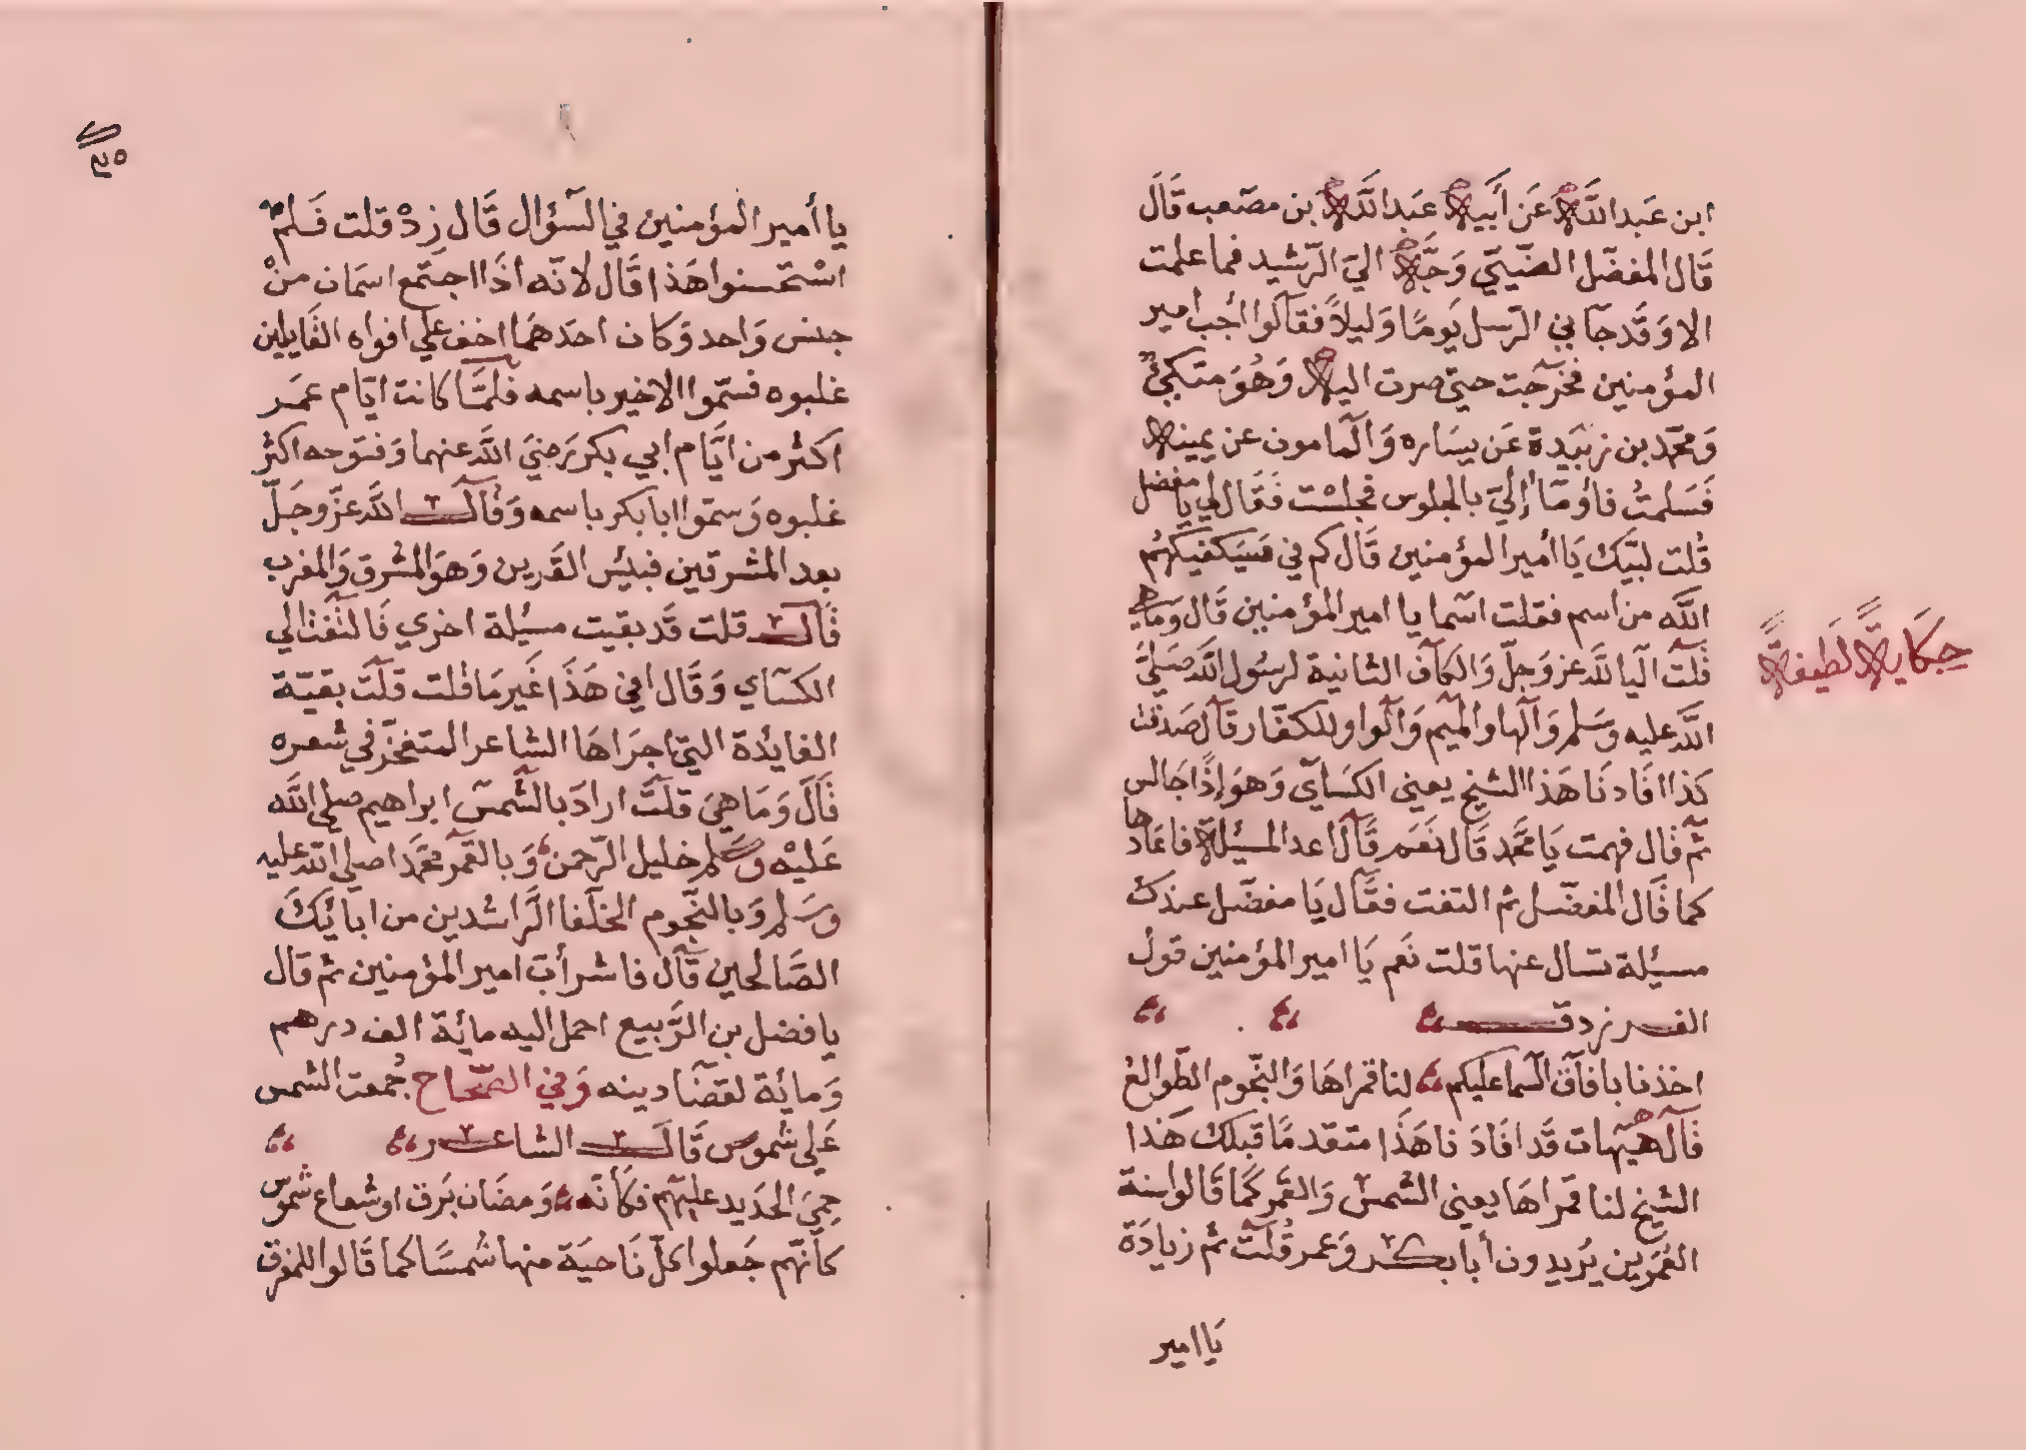 ابن عبد الله عن أبيه عبد الله بن مصعب قال
قال المفضل الضبيي وجه الي الرشيد فما علمت
الا وقد جاني الرسل يومًا وليلاً فقالوا أجب امير
المؤمنين فخرجت حتي صرت اليه وهو متكئ
ومحمد بن زبيدة عن يساره والمامون عن يمينه
فسلمت فأومأ إلي بالجلوس فجلست فقال لي يا مفضل
قلت لبيك يا أمير المؤمنين قال كم في فسيكفيكهم
الله من اسم فقلت اسما يا امير المؤمنين قال وما هي
قلت اليا لله عز وجل والكاف الثانية لرسول الله صلي
الله عليه وسلم والها والميم والواو للكفار قال صدقت
كذا افادنا هذا الشيخ يعني الكساي وهو إذًا جالس
ثم قال فهمت يا محمد قال نعم قال اعد المسيلة فاعادها
كما قال المفضل ثم التفت فقال يا مفضل عندك
مسيلة تسال عنها قلت نعم يا امير المؤمنين قول
الفرزدق
اخذنا بافاق السما عليكم لنا قمراها والنجوم الطوالع
قال هيهات قد افادنا هذا متقدمًا قبلك هذا
الشيخ لنا قمراها يعني الشمس والقمر كما قالوا سنة
العمرين يريدون أبا بكر وعمر قلت ثم زيادة
يا امير
حكاية لطيفة
يا أمير المؤمنين في السؤال قال زد قلت فلم
استحسنوا هذا قال لانه اذا اجتمع اسمان من
جنس واحد وكان احدهما اخف علي افواه القايلين
غلبوه فسموا الاخير باسمه فلما كانت ايام عمر
اكثر من ايام ابي بكر رضي الله عنهما وفتوحه اكثر
غلبوه وسموا ابا بكر باسمه وقال الله عز وجل
بعد المشرقين فبئس القرين وهو المشرق والمغرب
قال قلت قد بقيت مسيلة اخري فالتفت الي
الكساي وقال افي هذا غير ما قلت قلت بقية
الفايدة التي اجراها الشاعر المتفخر في شعره
قال وما هي قلت اراد بالشمس ابراهيم صلي الله
عليه وسلم خليل الرحمن وبالقمر محمدا صلي الله عليه
وسلم وبالنجوم الخلفا الراشدين من ابائك
الصالحين قال فاشرأب امير المؤمنين ثم قال
يا فضل بن الربيع احمل اليه مائة الف درهم
ومائة لقضا دينه وفي الصحاح جمعت الشمس
علي شموس قال الشاعر
حمي الحديد عليهم فكأنه ومضان برق او شعاع شموس
كأنهم جعلوا كل ناحية منها شمسًا كما قالوا للمفرق